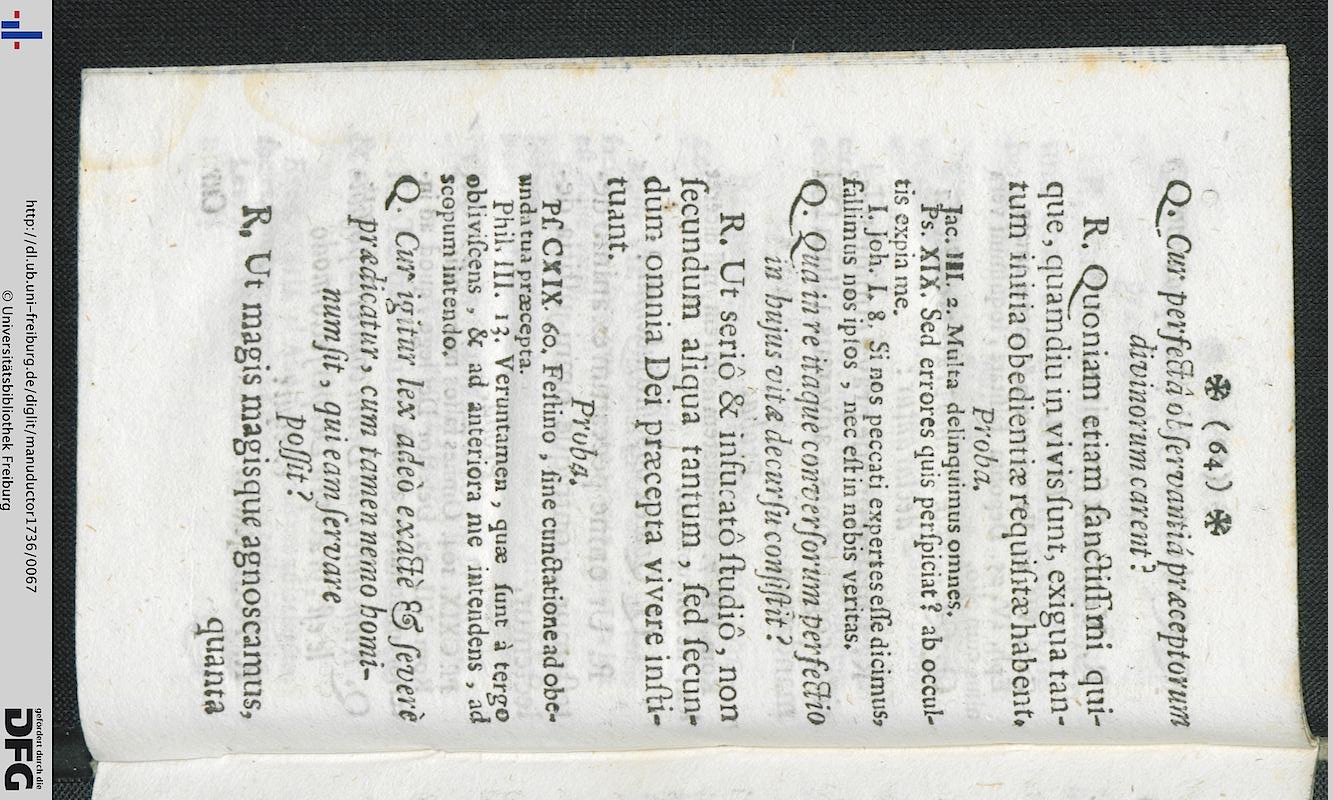 ❋ (64.) ❋
Q. Cur perfectâ observantiâ præceptorum
divinorum carent?
R. Quoniam etiam sanctissimi, qui-
que, quamdiu in vivis sunt, exigua tan-
tum initia obedientiæ requisitæ habent.
Proba.
Jac. III. 2. Multa delinquimus omnes.
Ps. XIX. Sed errores quis perspiciat? ab occul-
tis expia me.
I. Joh. I. 8. Si nos peccati expertes esse dicimus,
fallimus nos ipsos, nec est in nobis veritas.
Q. Qua in re itaque conversorum perfectio
in hujus vitæ decursu consistit?
R. Ut seriô & infucatô studiô, non
secundum aliqua tantum, sed secun-
dum omnia Dei præcepta vivere insti-
tuant.
Proba.
Ps. CXIX. 60. Festino, sine cunctatione ad obe-
unda tua præcepta.
Phil. III. 13. Veruntamen, quæ sunt à tergo
obliviscens, & ad anteriora me intendens, ad
scopum intendo.
Q. Cur igitur lex adeò exactè & severè
prædicatur, cum tamen nemo homi-
num sit, qui eam servare
possit?
R. Ut magis magisque agnoscamus,
quanta
http://dl.ub.uni-freiburg.de/diglit/manuductor1736/0067
© Universitätsbibliothek Freiburg
gefördert durch die
DFG